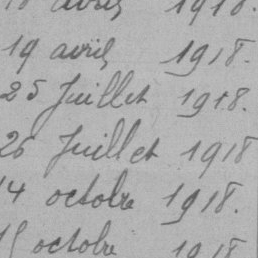 18 avril 1918.
19 avril 1918.
25 Juillet 1918.
26 Juillet 1918
14 octobre 1918.
15 octobre 1918